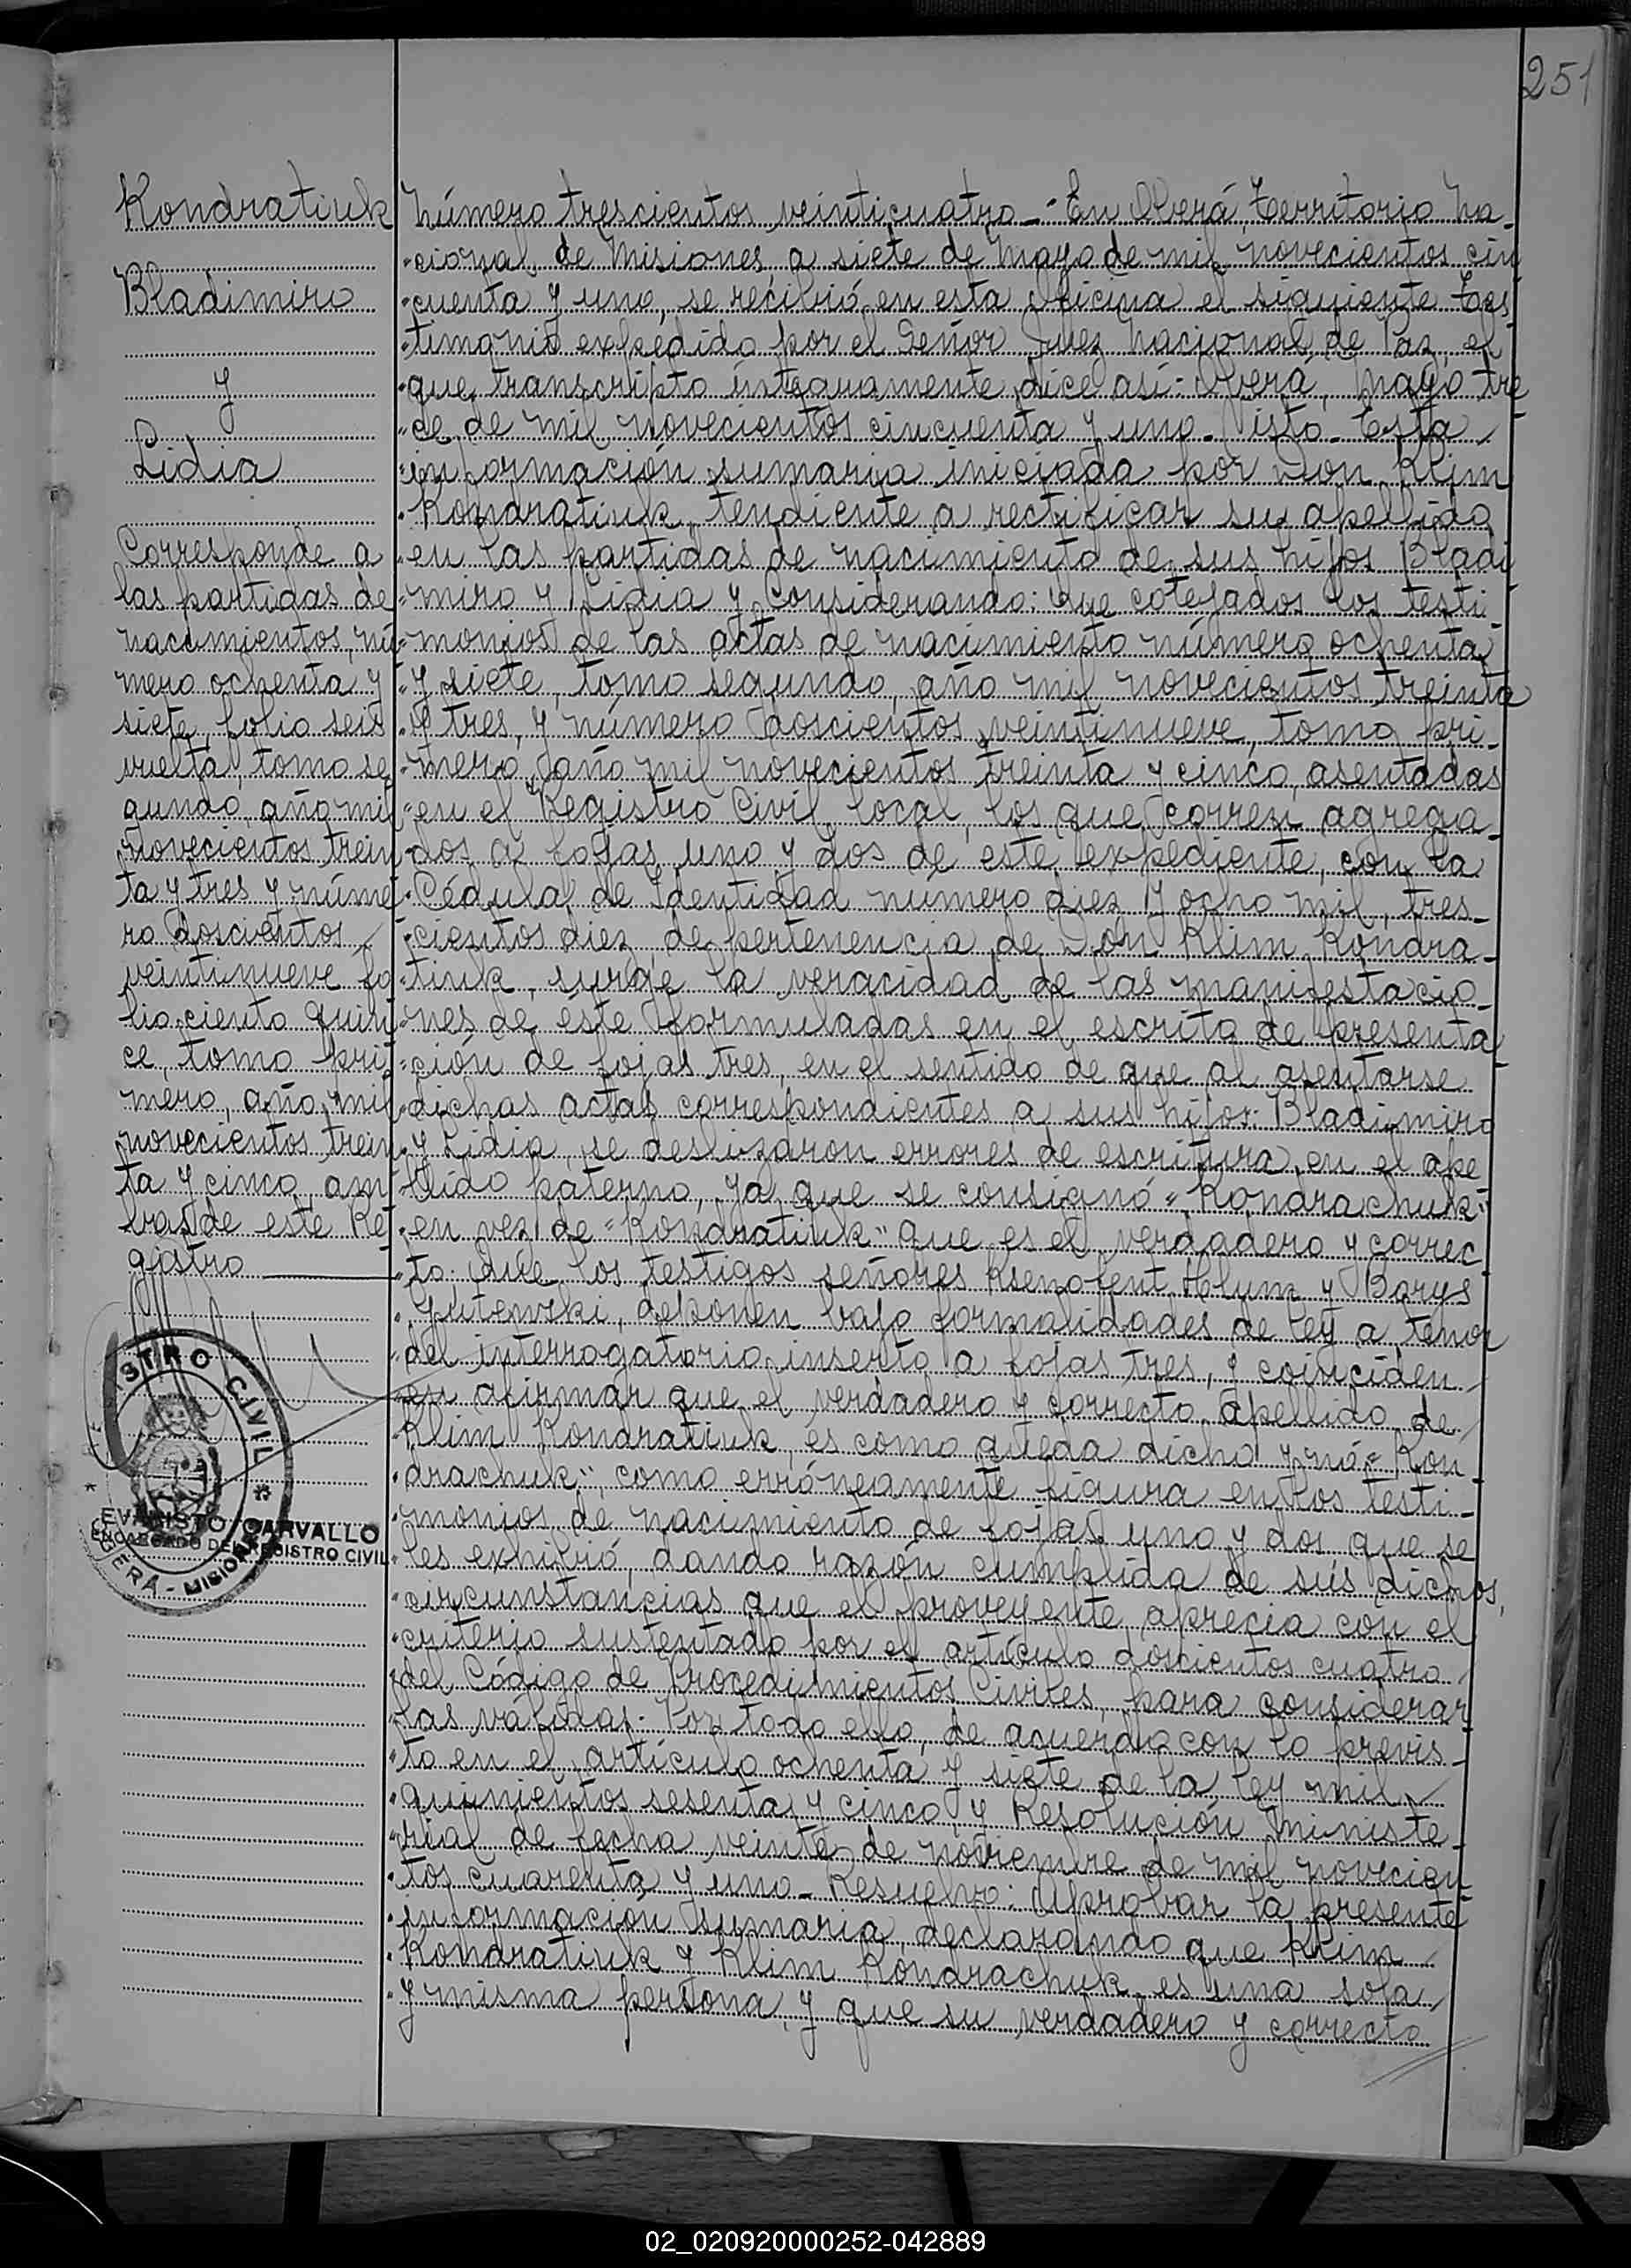 251
Kondratiuk
Bladimiro
y
Lidia
Corresponde a
las partidas de
nacimientos, nú-
mero ochenta y
siete, folio seis
vuelta, tomo se-
gundo, año mil
novecientos trein-
ta y tres y núme-
ro doscientos
veintinueve fo-
lio ciento quin-
ce, tomo pri-
mero, año mil
novecientos trein-
ta y cinco, am-
bas de este Re-
gistro
REGISTRO CIVIL
OBERÁ - MISIONES
EVARISTO CARVALLO
ENCARGADO DEL REGISTRO CIVIL
Número trescientos veinticuatro.- En Oberá, Territorio Na-
cional de Misiones a siete de Mayo de mil novecientos cin
cuenta y uno, se recibió en esta Oficina el siguiente Tes-
timonio expedido por el Señor Juez Nacional de Paz, el
que transcripto íntegramente dice así: Oberá, Mayo tre
ce de mil novecientos cincuenta y uno.- Visto.- Esta
información sumaria iniciada por Don Klim
Kondratiuk, tendiente a rectificar su apellido
en las partidas de nacimiento de sus hijos Bladi
miro y Lidia y Considerando: Que cotejados los testi-
monios de las actas de nacimiento número ochenta
y siete, tomo segundo, año mil novecientos treinta
y tres, y número doscientos veintinueve, tomo pri-
mero, año mil novecientos treinta y cinco, asentadas
en el Registro Civil local, los que corren agrega-
dos a fojas uno y dos de este expediente, con la
Cédula de Identidad número diez y ocho mil, tres-
cientos diez, de pertenencia de Don Klim Kondra-
tiuk, surge la veracidad de las manifestacio-
nes de éste formuladas en el escrito de presenta
ción de fojas tres, en el sentido de que al asentarse
dichas actas correspondientes a sus hijos: Bladimiro
y Lidia, se deslizaron errores de escritura, en el ape
llido paterno, ya que se consignó "Kondrachuk"
en vez de "Kondratiuk" que es el verdadero y correc-
to; Que los testigos señores Hlym y Borys
deponen bajo formalidades de ley a tenor
del interrogatorio inserto a fojas tres, y coinciden
en afirmar que el verdadero y correcto apellido de
Klim Kondratiuk, es como queda dicho y nó "Kon-
drachuk", como erróneamente figura en los testi-
monios de nacimiento de fojas uno y dos que se
les exhibió, dando razón cumplida de sus dichos,
circunstancias que el proveyente aprecia con el
criterio sustentado por el artículo doscientos cuatro
del Código de Procedimientos Civiles, para considerar
las válidas.- Por todo ello, de acuerdo con lo previs-
to en el artículo ochenta y siete de la ley mil
quinientos sesenta y cinco y Resolución Ministe-
rial de fecha veinte de noviembre de mil novecien
tos cuarenta y uno.- Resuelvo: Aprobar la presente
información sumaria, declarando que Klim
Kondratiuk y Klim Kondrachuk es una sola
y misma persona, y que su verdadero y correcto
02_020920000252-042889